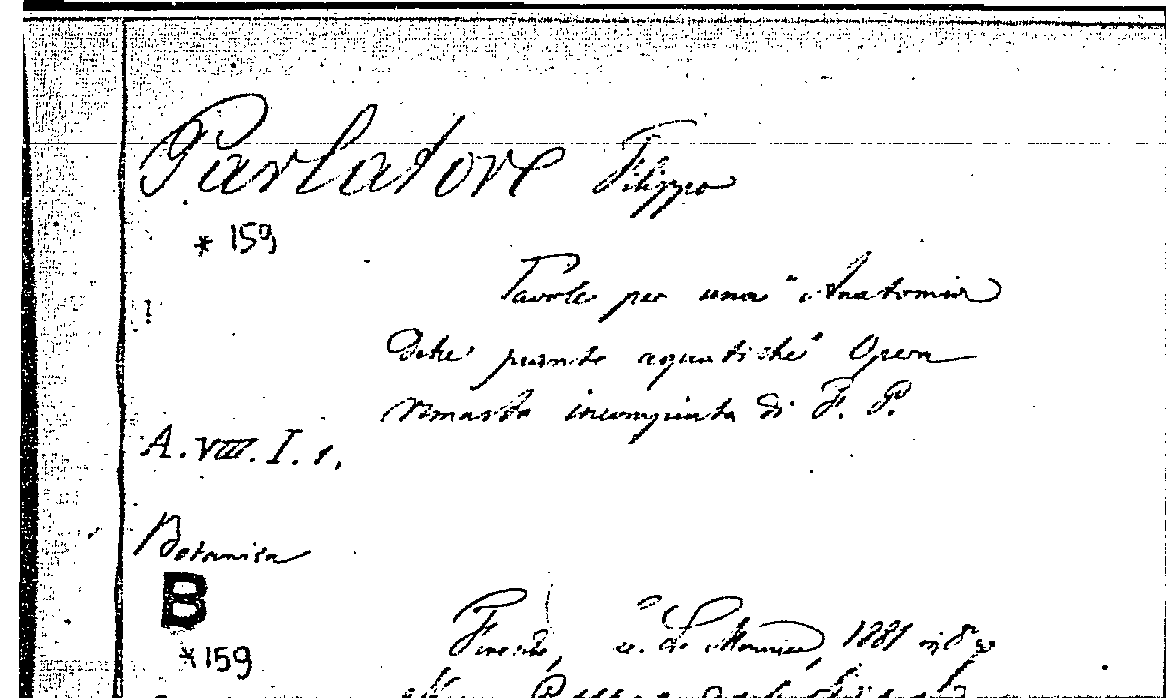 Parlatore Filippo
* 159
Tavole per una "Anatomia
delle piante aquatiche" Opera
rimasta incompiuta di F. P.
A. VIII. I. 1.
Botanica
B
Firenze, Le Monnier, 1881 in 8°
* 159